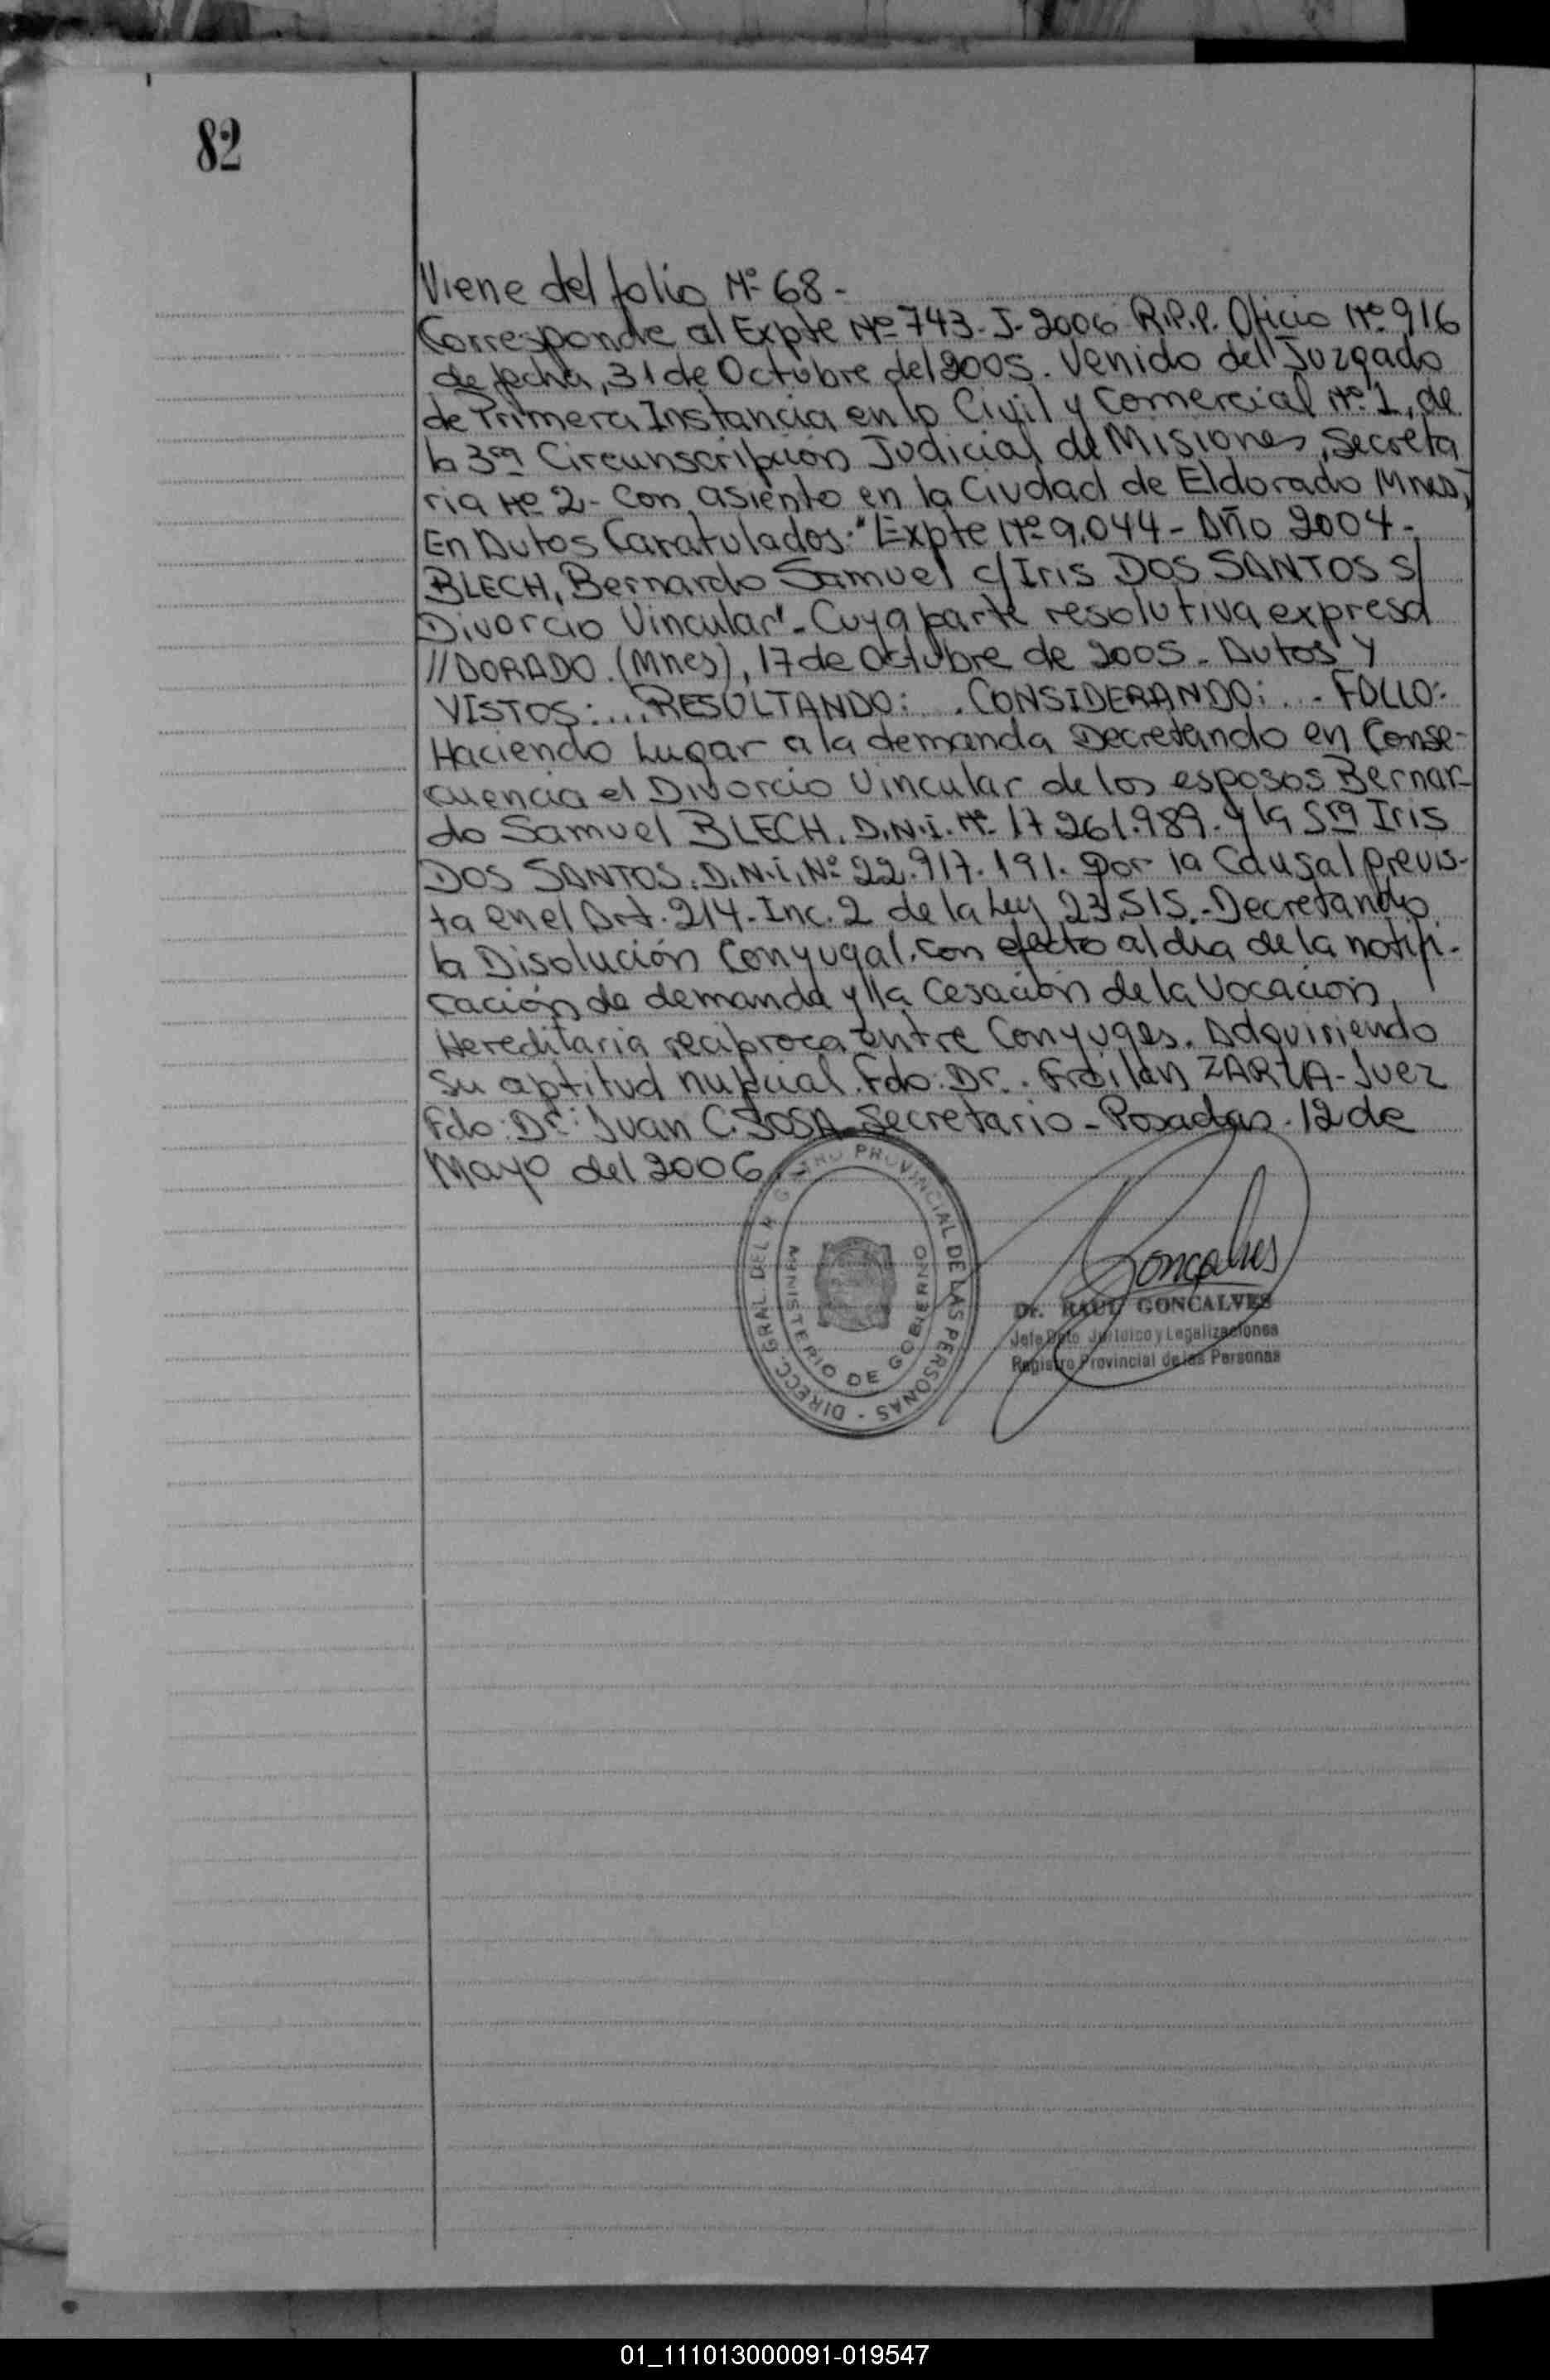 82
Viene del folio Nº 68.-
Corresponde al Expte Nº 743-J-2006 R.P.P. Oficio Nº 916
de fecha, 31 de Octubre del 2005. Venido del Juzgado
de Primera Instancia en lo Civil y Comercial Nº 1, de
la 3ra Circunscripción Judicial de Misiones, Secreta
ria Nº 2- Con asiento en la Ciudad de Eldorado Mnes,
En Autos Caratulados: "Expte Nº 9.044 - Año 2004.-
BLECH, Bernardo Samuel c/ Iris DOS SANTOS s/
Divorcio Vincular"- Cuya parte resolutiva expresa
//DORADO. (Mnes), 17 de Octubre de 2005.- Autos Y
VISTOS:... RESULTANDO:... CONSIDERANDO:... FALLO:
Haciendo Lugar a la demanda Decretando en Conse-
cuencia el Divorcio Vincular de los esposos Bernar-
do Samuel BLECH. D.N.I. Nº 17.261.989. y la Sra Iris
DOS SANTOS. D.N.I. Nº 22.917.191. por la Causal previs-
ta en el Art. 214-Inc. 2 de la Ley 23.515.-Decretando
la Disolución Conyugal, con efecto al dia de la notifi-
cación de demanda y la Cesación de la Vocación
Hereditaria reciproca entre Conyuges. Adquiriendo
su aptitud nupcial. Fdo: Dr. Froilan ZARZA-Juez
Fdo: Dr: Juan C. SOSA Secretario - Posadas. 12 de
Mayo del 2006.
DIRECC. GRAL. DEL REGISTRO PROVINCIAL DE LAS PERSONAS -
MINISTERIO DE GOBIERNO
Goncalves
Dr. RAUL GONCALVES
Jefe Dpto Juridico y Legalizaciones
Registro Provincial de las Personas
01_111013000091-019547